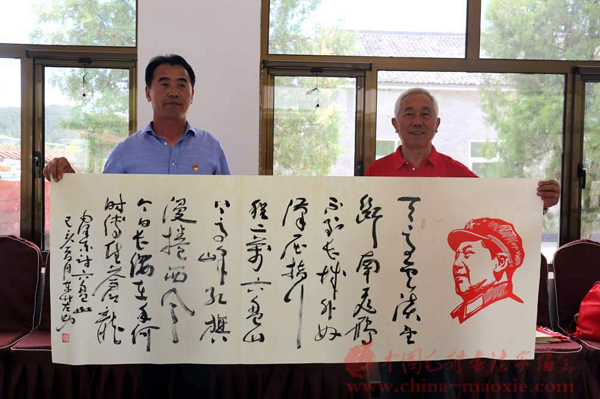 天高雲淡望
断南飛雁
不到长城非好
漢屈指行
程二萬六盘山
上高峰红旗
漫捲西风
今日长缨在手何
时缚住苍龙
毛泽东词六盘山
己亥
中国毛体书法家协会
www.china-maoxie.com